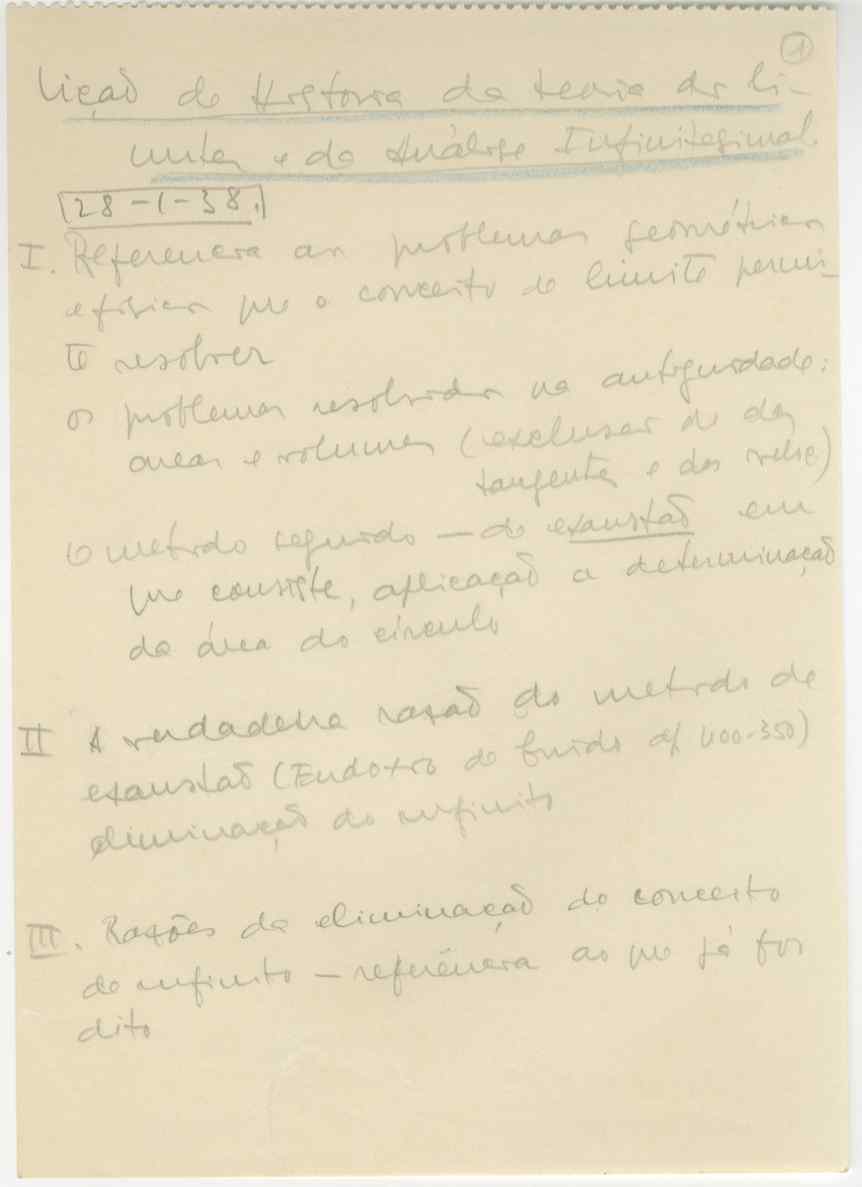 1
Lição de História da teoria dos li-
mites e da Análise Infinitesimal.
28-1-38.
I. Referencia aos problemas geométricos
e físicos que o conceito de limite permi-
te resolver
os problemas resolvidos na antiguidade:
areas e volumes (exclusão de das
tangentes e das veloc)
o metodo seguido — do exaustão em
que consiste, aplicação a determinação
da área do circulo
II A verdadeira razão do metodo de
exaustão (Eudoxio de Cnido 400-350)
eliminação do infinito
III. Razões da eliminação do conceito
de infinito — referência ao que já foi
dito